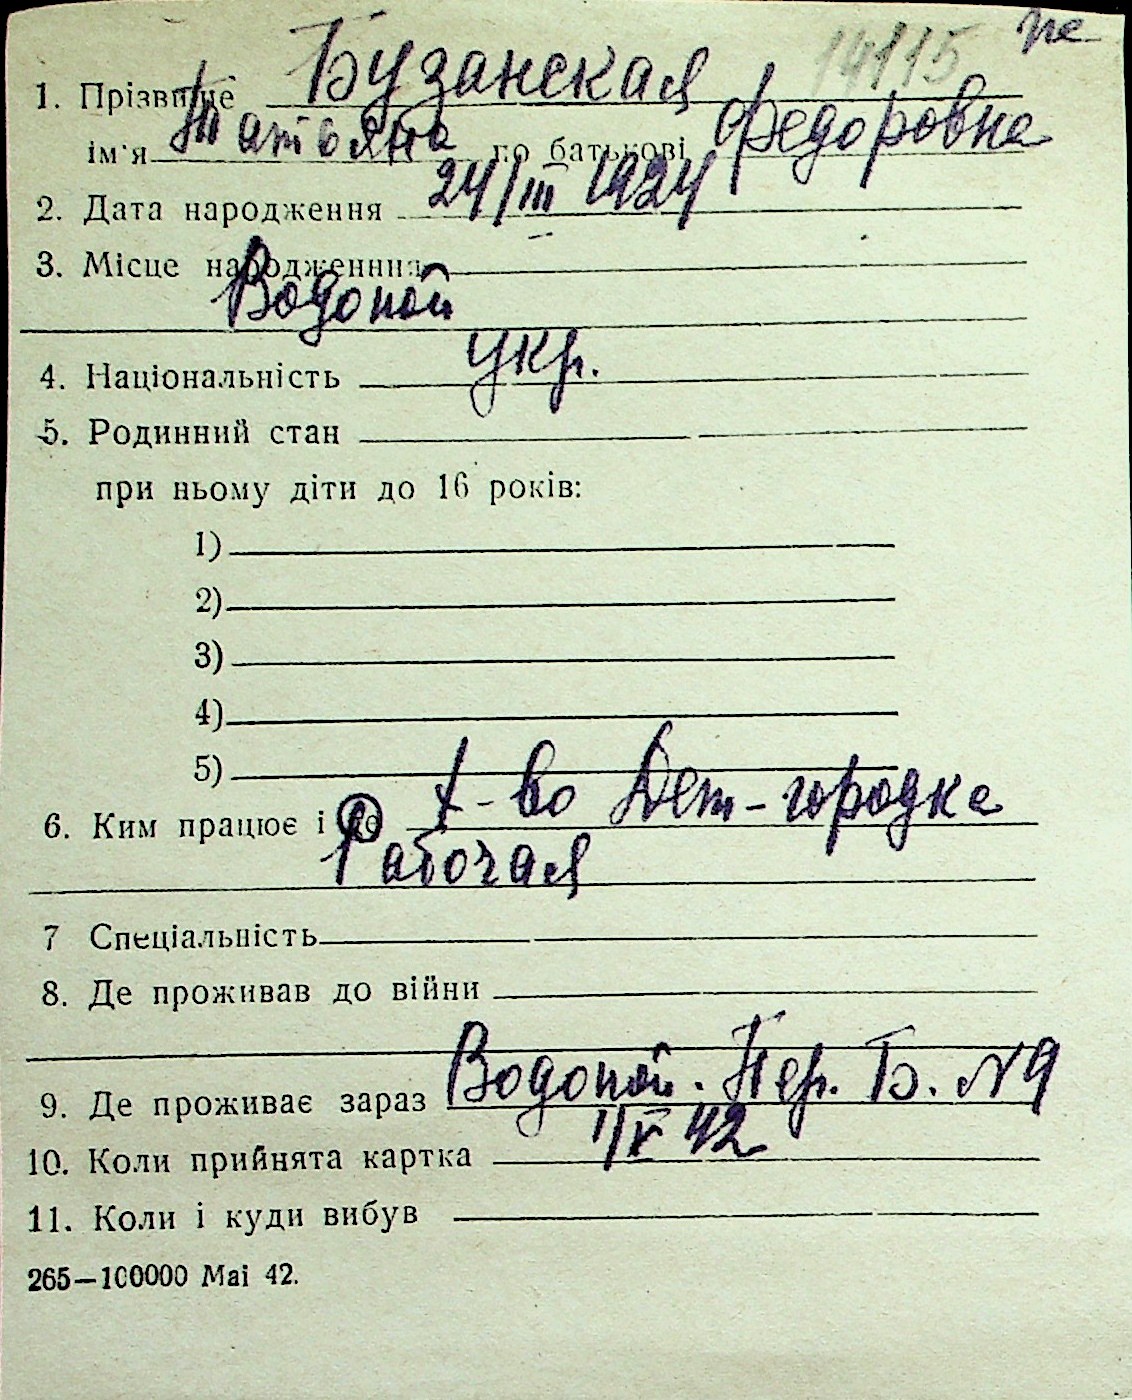 14115 пе
1. Прізвище Бузанская
ім'я Татьяна по батькові Федоровна
2. Дата народження 24/III 1924
3. Місце народженння
Водопой
4. Національність укр.
5. Родинний стан
при ньому діти до 16 років:
1)
2)
3)
4)
5)
6. Ким працює і де х-во Дет-городка
Рабочая
7 Спеціальність
8. Де проживав до війни
9. Де проживає зараз Водопой. Пер. Б. №9
10. Коли прийнята картка 1/V 42
11. Коли і куди вибув
265—100000 Mai 42.